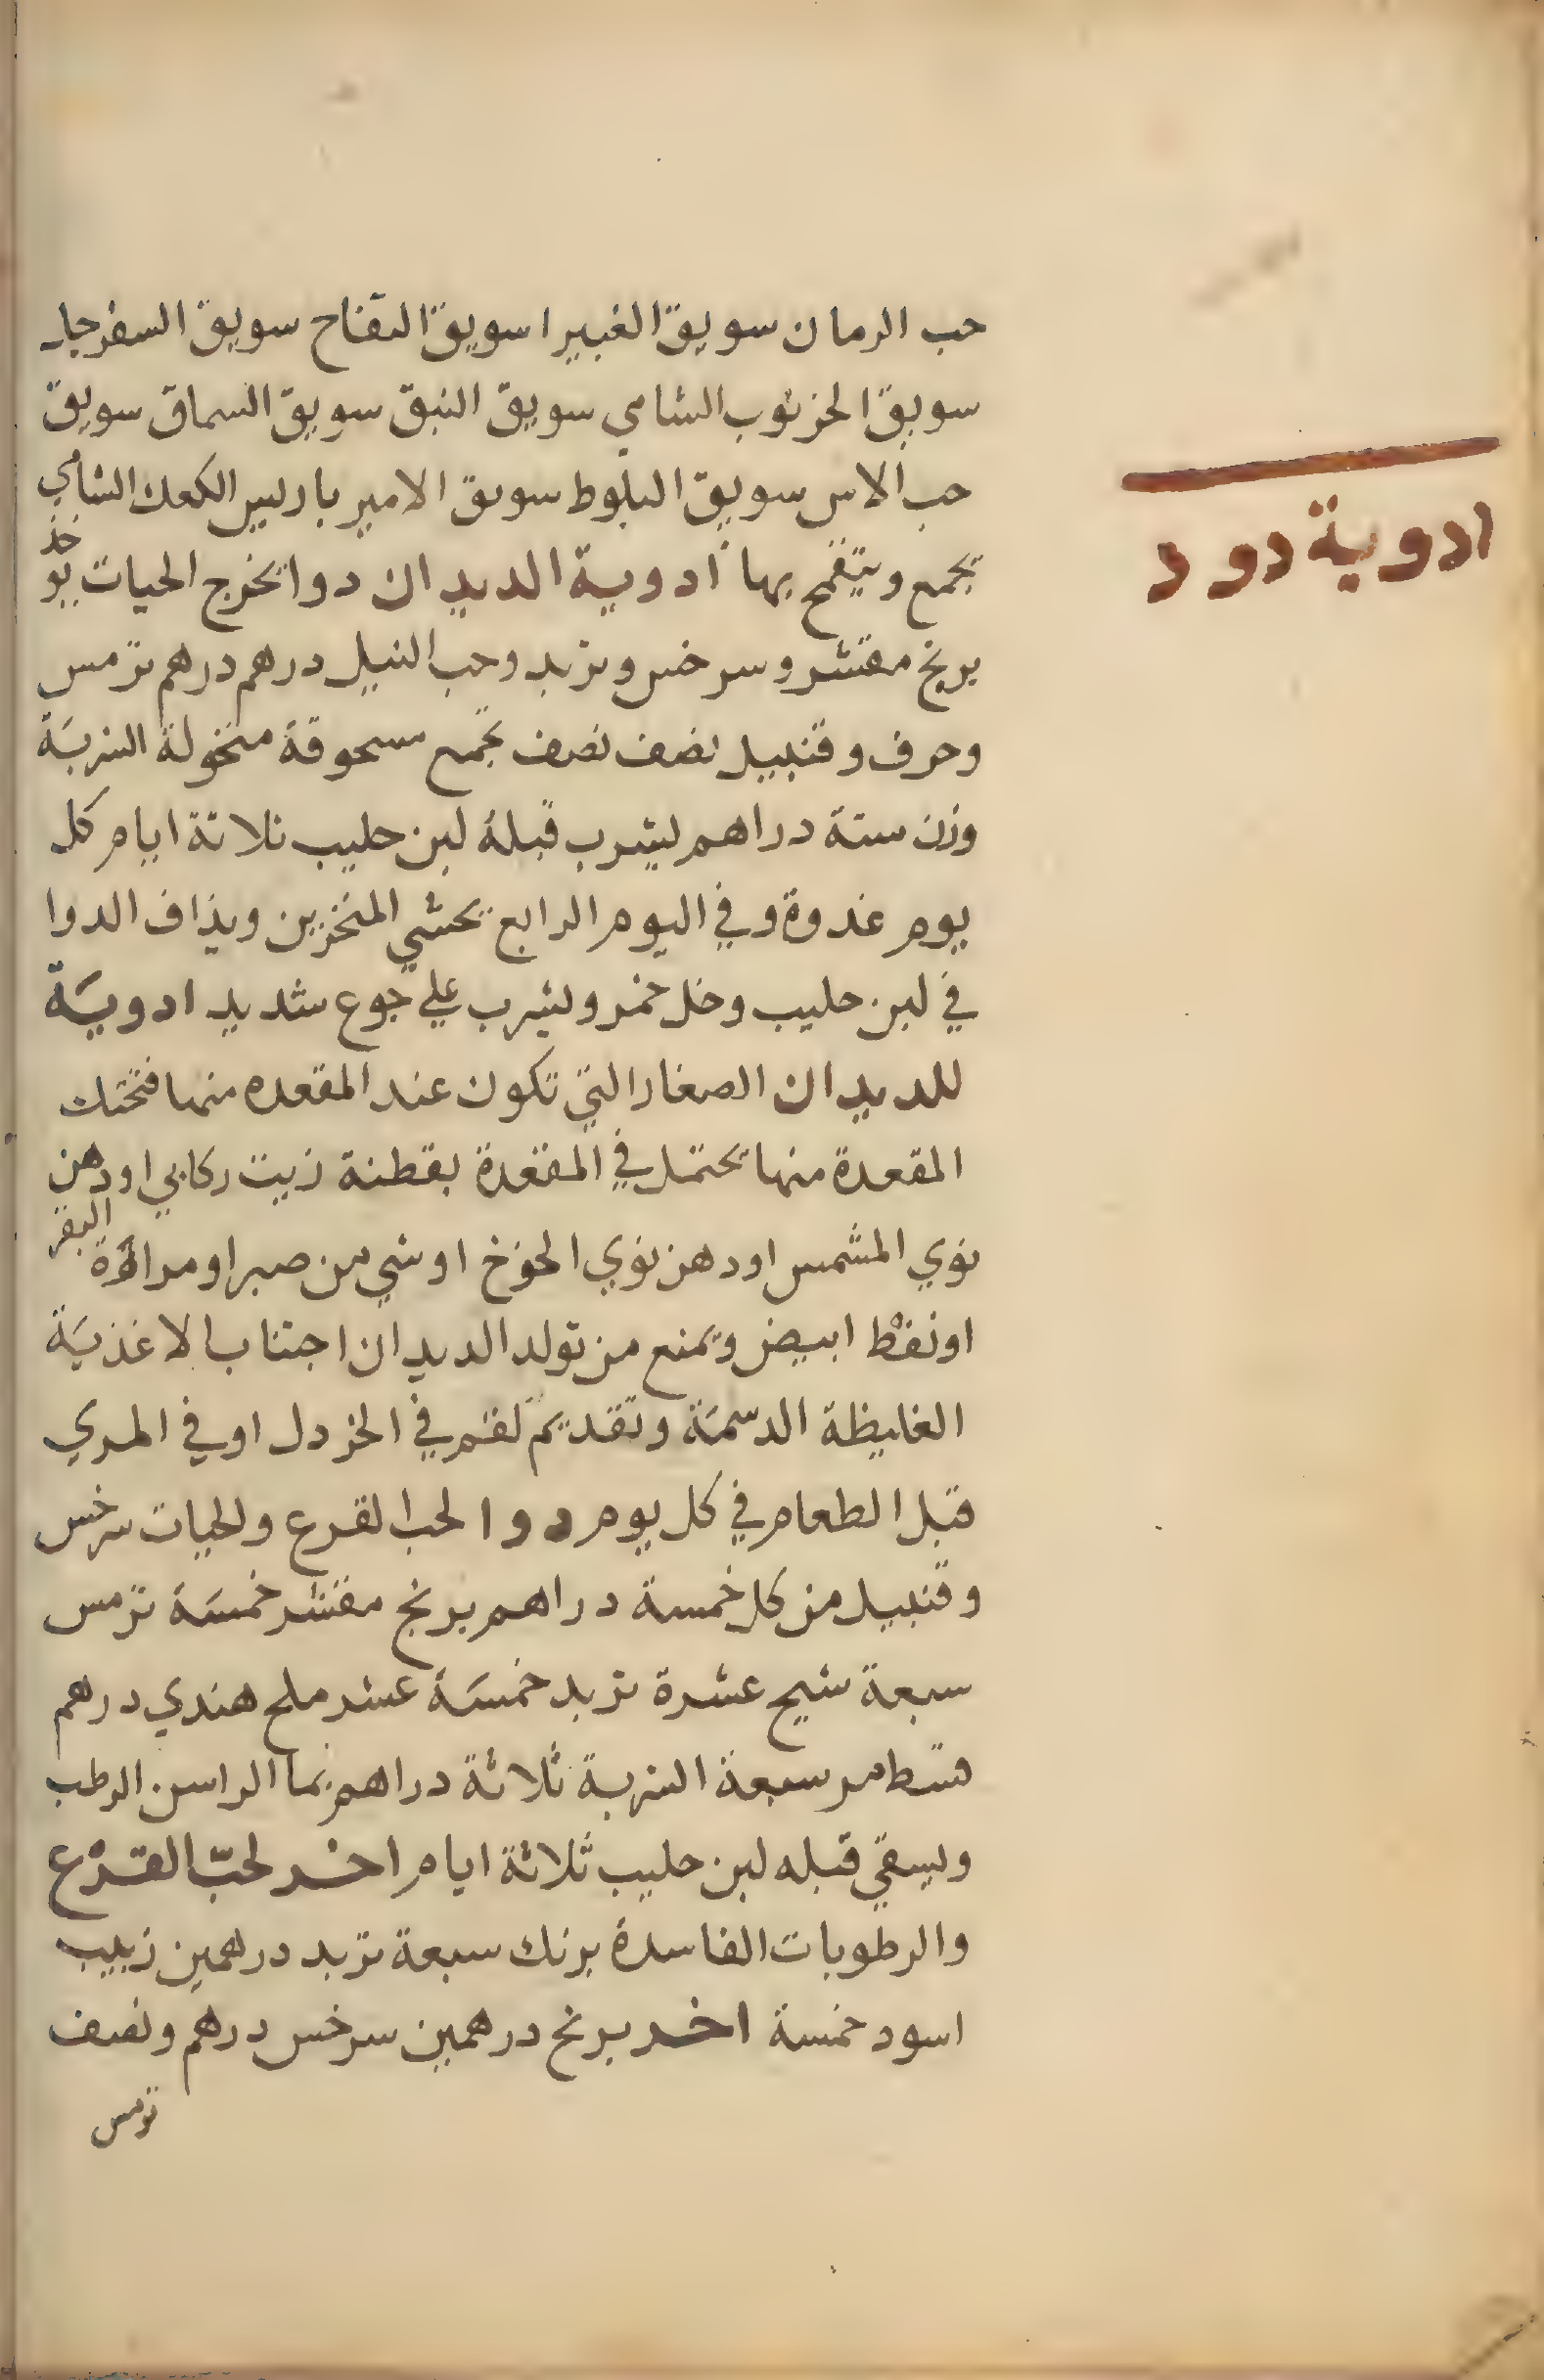 حب الرمان سويق الغبيرا سويق التفاح سويق السفرجل
سويق الخرنوب الشامي سويق النبق سويق السماق سويق
حب الاس سويق البلوط سويق الامير باريس الكعك الشامي
تجمع ويتقمح بها ادوية الديدان دوا يخرج الحيات يوخذ
برنج مقشر وسرخس وتربد وحب النيل درهم درهم ترمس
وحرف وقنبيل نصف نصف تجمع مسحوقة منخولة الشربة
وزن ستة دراهم يشرب قبله لبن حليب ثلاثة ايام كل
يوم غدوة وفي اليوم الرابع يحشي المنخرين ويذاف الدوا
في لبن حليب وخل خمر ويشرب علي جوع شديد ادوية
للديدان الصغار التي تكون عند المقعده منها فتحتك
المقعدة منها يحتمل في المقعدة بقطنة زيت ركابي او دهن
نوي المشمس او دهن نوي الخوخ او شي من صبر او مرارة البقر
او نفط ابيض ويمنع من تولد الديدان اجتناب الاغذية
الغليظة الدسمة وتقديم لقم في الخردل او في المري
قبل الطعام في كل يوم دوا لحب القرع والحيات سرخس
وقنبيل من كل خمسة دراهم برنج مقشر خمسة ترمس
سبعة شيح عشرة تربد خمسة عشر ملح هندي درهم
قسط مر سبعة الشربة ثلاثة دراهم بما الراسن الرطب
ويسقي قبله لبن حليب ثلاثة ايام اخر لحب القرع
والرطوبات الفاسدة برنك سبعة تربد درهمين زبيب
اسود خمسة اخر برنج درهمين سرخس درهم ونصف
ترمس
ادوية دود